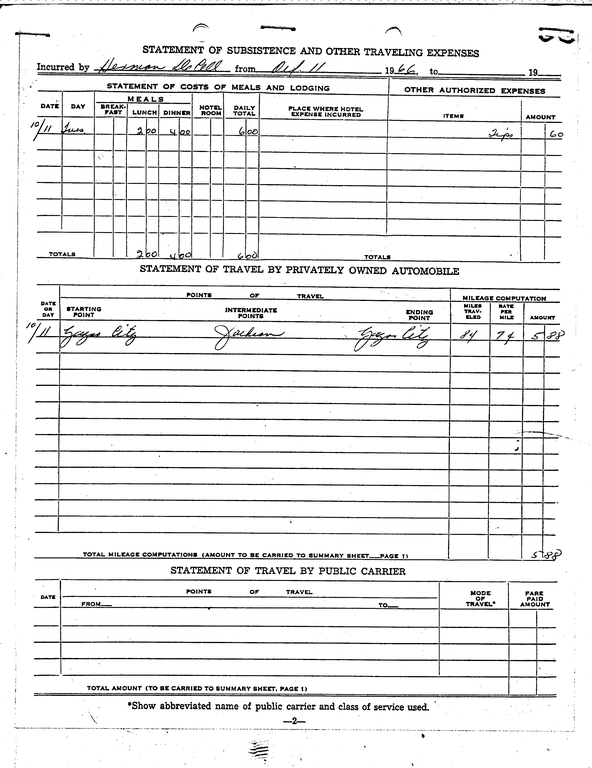 STATEMENT OF SUBSISTENCE AND OTHER TRAVELING EXPENSES
Incurred by Herman from Oct 11 1966, to 19
STATEMENT OF COSTS OF MEALS AND LODGING OTHER AUTHORIZED EXPENSES
MEALS
DATE DAY BREAK-FAST LUNCH DINNER HOTEL ROOM DAILY TOTAL PLACE WHERE HOTEL EXPENSE INCURRED ITEMS AMOUNT
10/11 Tues 2 00 4 00 6 00 Tips 60
TOTALS 2 00 4 00 6 00 TOTALS
STATEMENT OF TRAVEL BY PRIVATELY OWNED AUTOMOBILE
POINTS OF TRAVEL MILEAGE COMPUTATION
DATE OR DAY STARTING POINT INTERMEDIATE POINTS ENDING POINT MILES TRAV-ELED RATE PER MILE AMOUNT
10/11 Yazoo City Jackson Yazoo City 84 7¢ 5 88
TOTAL MILEAGE COMPUTATIONS (AMOUNT TO BE CARRIED TO SUMMARY SHEET PAGE 1) 5 88
STATEMENT OF TRAVEL BY PUBLIC CARRIER
DATE POINTS OF TRAVEL MODE OF TRAVEL* FARE PAID AMOUNT
FROM TO
TOTAL AMOUNT (TO BE CARRIED TO SUMMARY SHEET, PAGE 1)
*Show abbreviated name of public carrier and class of service used.
—2—